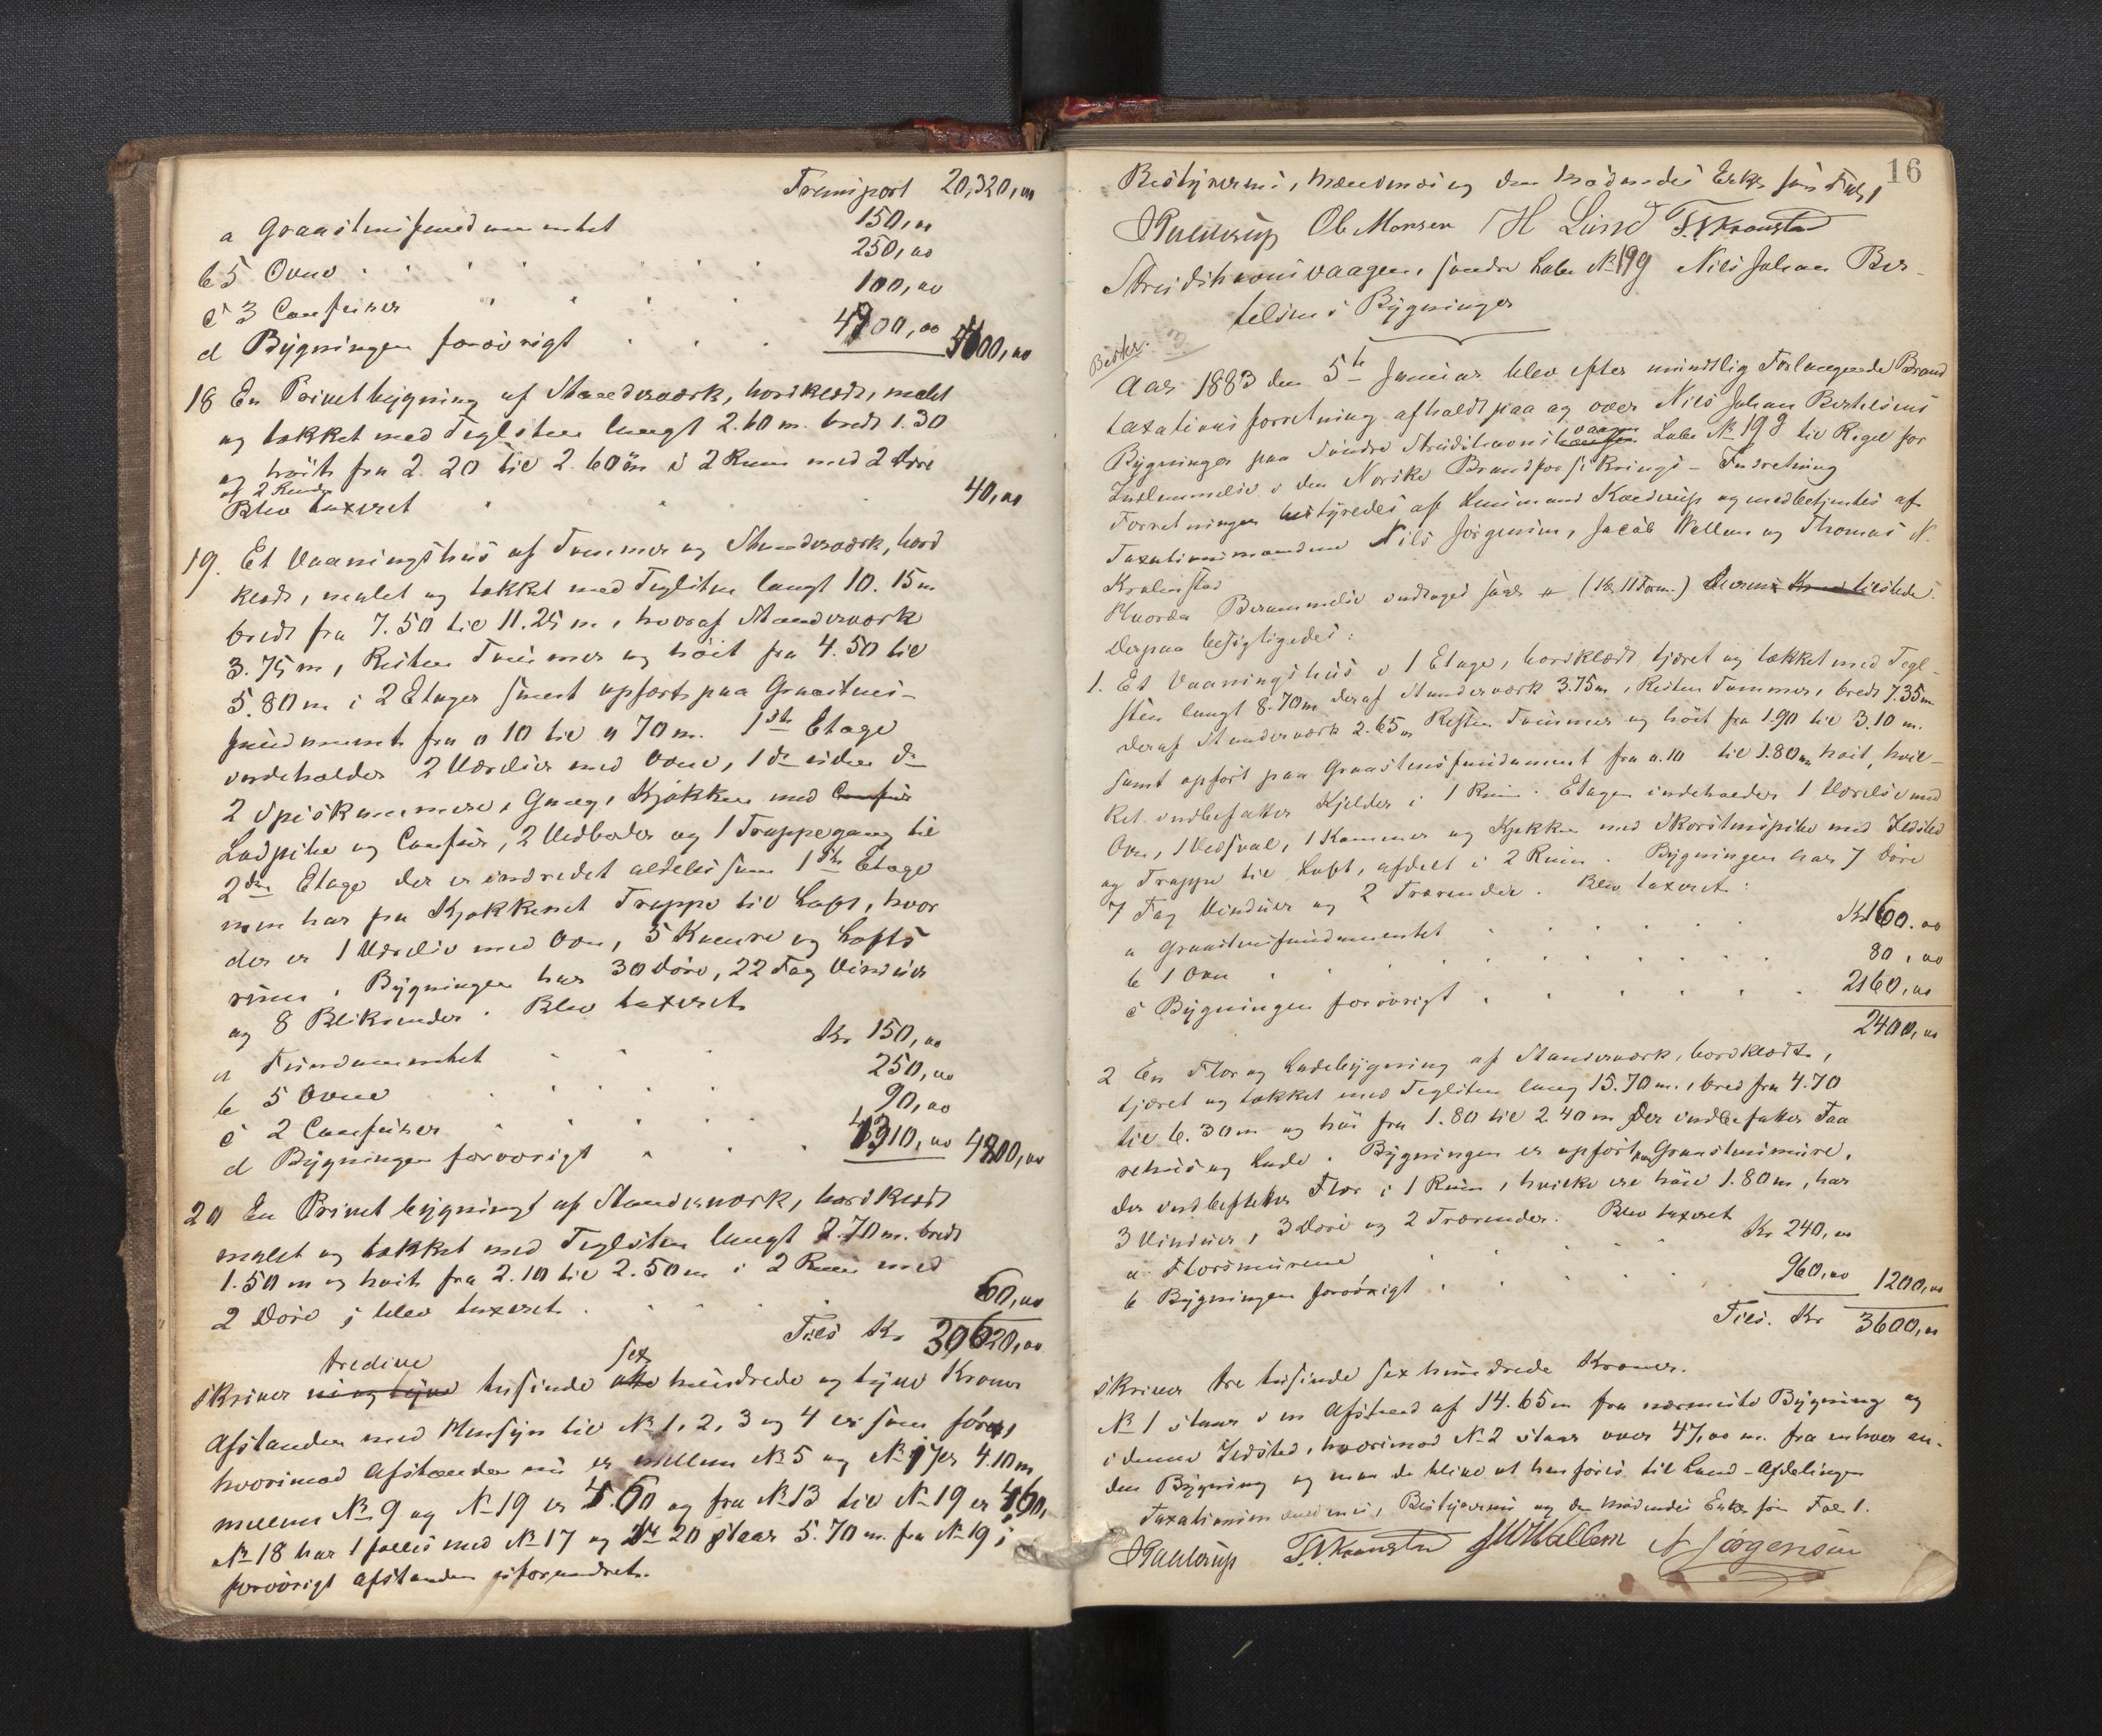 Transport 20,320,00
a Graastensfundamentet 150,00
b 5 Ovne 250,00
c 3 Comfurer 100,00
d Bygningen forøvrigt
18 En Privetbygning af Standerværk, bordklædt, malet
og tækket med Teglsten langt 2.60 m. bredt 1.30
og høit fra 2.20 til 2.60 m i 2 Rum med 2 Døre
Blev taxeret 40,00
19. Et Vaaningshus af Tømmer og Standerværk, bord
klædt, malet og tækket med Teglsten langt 10.15 m
bredt fra 7.50 til 11.25 m, hvoraf Standerværk
3.75 m, Resten Tømmer og høit fra 4.50 til
5.80 m i 2 Etager samt opført paa Graastens-
fundament fra 0 10 til 0 70 m. 1ste Etage
indeholder 2 Værelser med Ovne, 1 do uden do
2 Spiskammere, Gang, Kjøkken med Comfur
Ladpibe og Comfur, 2 Vedboder og 1 Trappegang til
2den Etage der er indredet aldeles som 1ste Etage
men har fra Kjøkkenet Trappe til Loft, hvor
der er 1 Værelse med Ovn, 5 Kamre og Lofts
rum. Bygningen har 30 Døre, 22 Fag Vinduer
og 8 Blikrender. Blev taxeret
a Fundamentet Kr 150,00
b 5 Ovne 250,00
c 2 Comfurer 90,00
d Bygningen forøvrigt 4310,00 4800,00
20 En Privet bygningt af Standerværk, bordklædt
malet og tækket med Teglsten langt 2.70 m. bredt
1.50 m og høit fra 2.10 til 2.50 m i 2 Rum med
2 Døre; blev taxeret 60,00
Tils Kr 30620,00
tredive sex
skriver ni og tyve tusinde otte hundrede og tyve Kroner
Afstanden med Hensyn til No 1, 2, 3 og 4 er som før,
hvorimod Afstanden nu er mellem No 5 og No 17 er 4.10 m
mellem No 9 og No 19 er 4.60 og fra No 13 til No 19 er 4.60,
No 18 har 1 fælles med No 17 og No 20 staar 5.70 m. fra No 19;
forøvrigt Afstanden uforandret.
16
Bestyrerens, Mændenes og den mødendes Eeder som Fol. 1
Ole Monsen H Lund T. N. Kronstad
Strudshavnsvaagen, søndre Løbe No 199 Nils Johan Ber-
telsens Bygninger
Aar 1883 den 5te Januar blev efter mundtlig Forlangende Brand
taxationsforretning afholdt paa og over Nils Johan Bertelsens
vaagen
Bygninger paa søndre Strudshavns Løbe No 199 til Regel for
Indlemmelse i den Norske Brandforsikrings-Indretning
Forretningen bestyredes af Lensmand Kaldrup og medbetjentes af
Taxationsmændene Nils Jørgensen, Jacob Wallem og Thomas N.
Kronstad
(Kl 11 Form.) tilstede.
Derpaa besigtigedes:
1. Et Vaaningshus i 1 Etage, bordklædt, tjæret og tækket med Tegl-
sten langt 8.70 m deraf Standerværk 3.75 m, Resten Tømmer, bredt 7.35 m
deraf Standerværk 2.65 m, Resten Tømmer og høit fra 1.90 til 3.10 m.
samt opført paa Graastensfundament fra 0.10 til 1.80 m høit, hvil-
ket indbefatter Kjelder i 1 Rum. Etagen indeholder 1 Værelse med
Ovn, 1 Vedsval, 1 Kammer og Kjøkken med Skorstenspibe med Ildsted
og Trappe til Loft, afdelt i 2 Rum. Bygningen har 7 Døre
7 Fag Vinduer og 2 Trærender. Blev taxeret:
a Graastensfundamentet Kr 160.00
b 1 Ovn 80,00
c Bygningen forøvrigt 2160,00
2400,00
2 En Flor og Ladebygning af Standerværk, bordklædt,
tjæret og tækket med Teglsten lang 15.70 m., bred fra 4.70
til 6.30 m og høi fra 1.80 til 2.40 m Der indbefatter Faa
rehus og Lade. Bygningen er opført paa Graastensmure,
der indbefatter Flor i 1 Rum, hvilke ere høie 1.80 m, har
3 Vinduer, 3 Døre og 2 Trærender. Blev taxeret
a Florsmurene Kr 240,00
b Bygningen forøvrigt 960,00 1200,00
Tils. Kr 3600,00
skriver tre tusinde sex hundrede Kroner.
No 1 staar i en Afstand af 14.65 m fra nærmeste Bygning og
i denne Ildsted, hvorimod No 2 staar over 47,00 m. fra enhver an-
den Bygning og maa de blive at henføres til Land-Afdelingen
Taxationsmændenes, Bestyrerens og den mødendes Eeder som Fol 1.
T. N. Kronstad JWWallem N Jørgensen